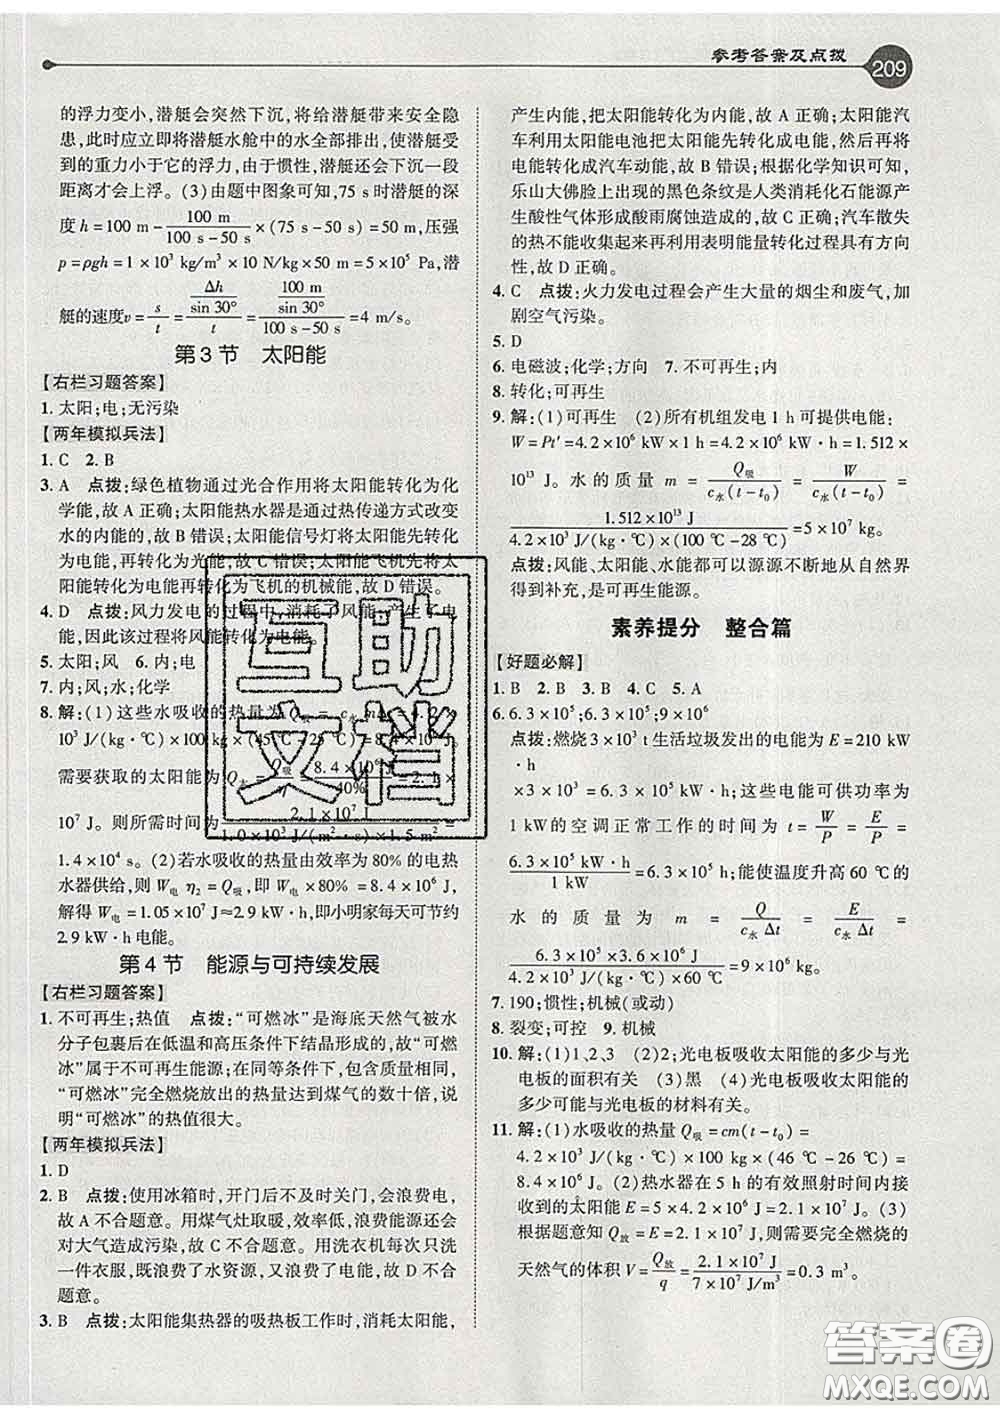 参考答案及点拨
209
的浮力变小,潜艇会突然下沉,将给潜艇带来安全隐
患,此时应立即将潜艇水舱中的水全部排出,使潜艇受
到的重力小于它的浮力,由于惯性,潜艇还会下沉一段
距离才会上浮。(3)由题中图象可知,75 s时潜艇的深
度 h = 100 m − 100 m/(100 s − 50 s) ×(75 s − 50 s) = 50 m,压强
p = ρgh = 1 × 10³ kg/m³ × 10 N/kg × 50 m = 5 × 10⁵ Pa,潜
艇的速度 v = s/t = (Δh/sin 30°)/t = (100 m/sin 30°)/(100 s − 50 s) = 4 m/s。
第3节 太阳能
【右栏习题答案】
1. 太阳;电;无污染
【两年模拟兵法】
1. C 2. B
3. A 点拨:绿色植物通过光合作用将太阳能转化为化
学能,故 A 正确;太阳能热水器是通过热传递方式改变
水的内能的,故 B 错误;太阳能信号灯将太阳能先转化
为电能,再转化为光能,故 C 错误;太阳能飞机先将太
阳能转化为电能再转化为飞机的机械能,故 D 错误。
4. D 点拨:风力发电的过程中,消耗了风能,产生了电
能,因此该过程将风能转化为电能。
5. 太阳;风 6. 内;电
7. 内;风;水;化学
8. 解:(1)这些水吸收的热量为 Q吸 = c水 m = 4.2 ×
10³ J/(kg · ℃) × 100 kg × (45 ℃ − 25 ℃) = 8.4 × 10⁶ J。
需要获取的太阳能为 Q太 = Q吸/η = 8.4 × 10⁶ J/40% = 2.1 ×
10⁷ J。则所需时间为 2.1 × 10⁷ J/(1.0 × 10³ J/(m² · s) × 1.5 m²) =
1.4 × 10⁴ s。(2)若水吸收的热量由效率为 80% 的电热
水器供给,则 W电 η₂ = Q吸,即 W电 × 80% = 8.4 × 10⁶ J,
解得 W电 = 1.05 × 10⁷ J ≈ 2.9 kW · h,即小明家每天可节约
2.9 kW · h 电能。
第4节 能源与可持续发展
【右栏习题答案】
1. 不可再生;热值 点拨:“可燃冰”是海底天然气被水
分子包裹后在低温和高压条件下结晶形成的,故“可燃
冰”属于不可再生能源;在同等条件下,包含质量相同,
“可燃冰”完全燃烧放出的热量达到煤气的数十倍,说
明“可燃冰”的热值很大。
【两年模拟兵法】
1. D
2. B 点拨:使用冰箱时,开门后不及时关门,会浪费电,
故 A 不合题意。用煤气灶取暖,效率低,浪费能源还会
对大气造成污染,故 C 不合题意。用洗衣机每次只洗
一件衣服,既浪费了水资源,又浪费了电能,故 D 不合
题意。
3. B 点拨:太阳能集热器的吸热板工作时,消耗太阳能,
产生内能,把太阳能转化为内能,故 A 正确;太阳能汽
车利用太阳能电池把太阳能先转化成电能,然后再将
电能转化成汽车动能,故 B 错误;根据化学知识可知,
乐山大佛脸上出现的黑色条纹是人类消耗化石能源产
生酸性气体形成酸雨腐蚀造成的,故 C 正确;汽车散失
的热不能收集起来再利用表明能量转化过程具有方向
性,故 D 正确。
4. C 点拨:火力发电过程会产生大量的烟尘和废气,加
剧空气污染。
5. D
6. 电磁波;化学;方向 7. 不可再生;内
8. 转化;可再生
9. 解:(1)可再生 (2)所有机组发电 1 h 可提供电能:
W = Pt′ = 4.2 × 10⁶ kW × 1 h = 4.2 × 10⁶ kW · h = 1.512 ×
10¹³ J。水的质量 m = Q吸/(c水(t − t₀)) = W/(c水(t − t₀)) =
1.512 × 10¹³ J/(4.2 × 10³ J/(kg · ℃) × (100 ℃ − 28 ℃)) = 5 × 10⁷ kg。
点拨:风能、太阳能、水能都可以源源不断地从自然界
得到补充,是可再生能源。
素养提分 整合篇
【好题必解】
1. B 2. B 3. B 4. C 5. A
6. 6.3 × 10⁵;6.3 × 10⁵;9 × 10⁶
点拨:燃烧 3 × 10³ t 生活垃圾发出的电能为 E = 210 kW
· h × 3 × 10³ = 6.3 × 10⁵ kW · h;这些电能可供功率为
1 kW 的空调正常工作的时间为 t = W/P = E/P =
6.3 × 10⁵ kW · h/1 kW = 6.3 × 10⁵ h;能使温度升高 60 ℃ 的
水的质量为 m = Q/(c水 Δt) = E/(c水 Δt) =
6.3 × 10⁵ × 3.6 × 10⁶ J/(4.2 × 10³ J/(kg · ℃) × 60 ℃) = 9 × 10⁶ kg。
7. 190;惯性;机械(或动)
8. 裂变;可控 9. 机械
10. 解:(1)1、2、3 (2)2;光电板吸收太阳能的多少与光
电板的面积有关 (3)黑 (4)光电板吸收太阳能的
多少可能与光电板的材料有关。
11. 解:(1)水吸收的热量 Q吸 = cm(t − t₀) =
4.2 × 10³ J/(kg · ℃) × 100 kg × (46 ℃ − 26 ℃) =
8.4 × 10⁶ J。(2)热水器在 5 h 的有效照射时间内接
收到的太阳能 E = 5 × 4.2 × 10⁶ J = 2.1 × 10⁷ J。(3)
根据题意知 Q放 = E = 2.1 × 10⁷ J,则需要完全燃烧的
天然气的体积 V = Q放/q = 2.1 × 10⁷ J/(7 × 10⁷ J/m³) = 0.3 m³。
互助
文档
答案圈
MXQE.COM